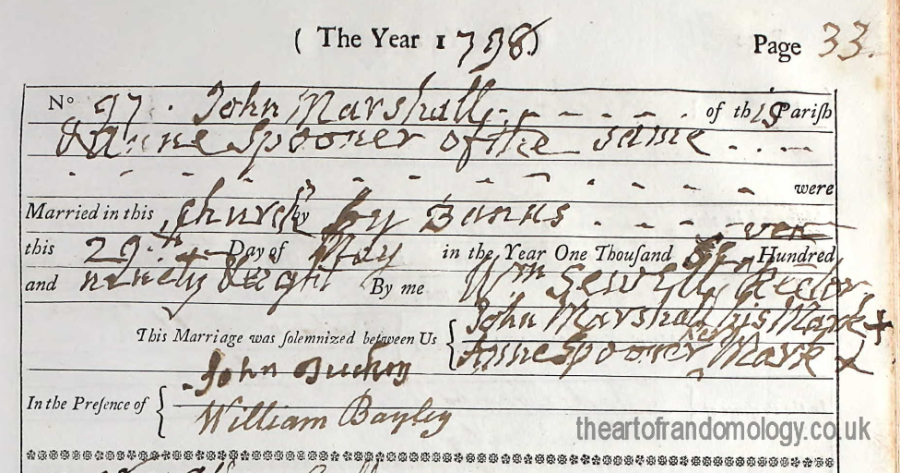 ( The Year 1798)
Page 33.
No 97. John Marshall - - - - - of this Parish
& Anne Spooner of the same - - -
- - - - - - - - - - were
Married in this Church by by Banns - - - -
this 29th Day of May in the Year One Thousand Hundred
and ninety & eight By me Wm Sewell Rector
This Marriage was solemnized between Us { John Marshall his Mark +
Anne Spooner her Mark x
In the Presence of { John
William Bayley
theartofrandomology.co.uk